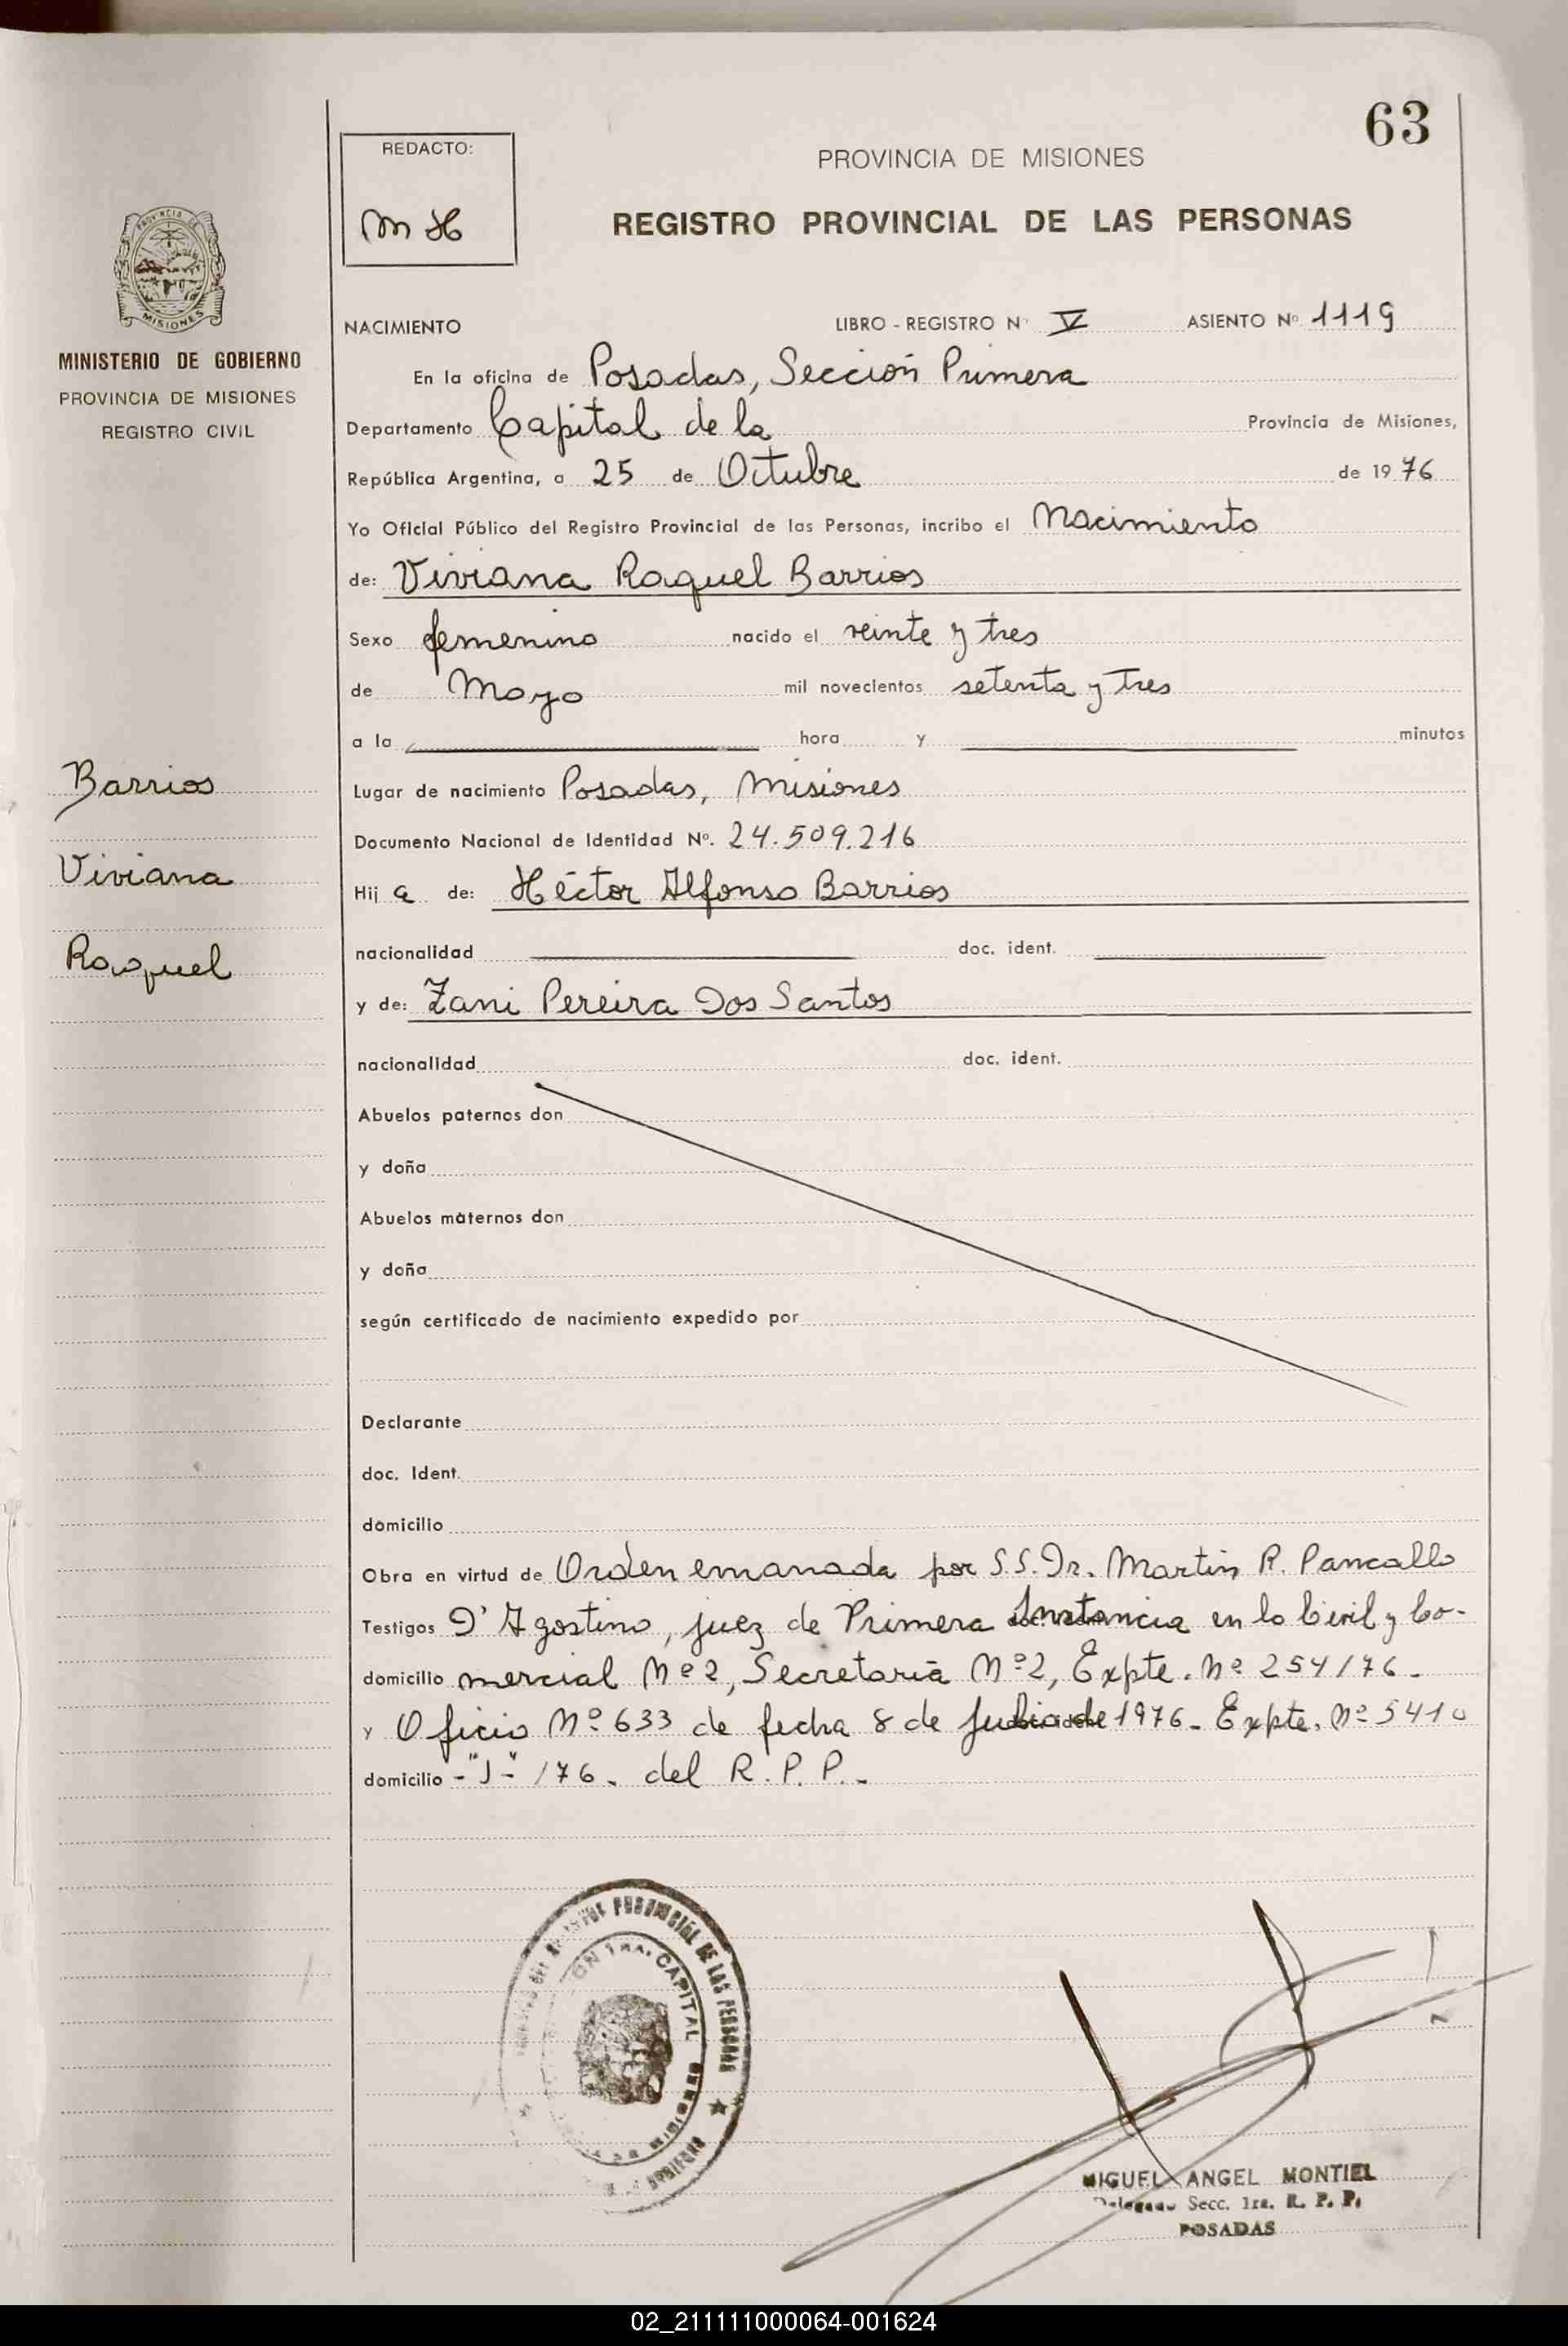 63
REDACTO:
MH
PROVINCIA DE MISIONES
REGISTRO PROVINCIAL DE LAS PERSONAS
PROVINCIA DE
MISIONES
MINISTERIO DE GOBIERNO
PROVINCIA DE MISIONES
REGISTRO CIVIL
NACIMIENTO LIBRO - REGISTRO Nº V ASIENTO Nº 1119
En la oficina de Posadas, Sección Primera
Departamento Capital de la Provincia de Misiones,
República Argentina, a 25 de Octubre de 1976
Yo Oficial Público del Registro Provincial de las Personas, incribo el Nacimiento
de: Viviana Raquel Barrios
Sexo femenino nacido el veinte y tres
de Mayo mil novecientos setenta y tres
a la hora y minutos
Lugar de nacimiento Posadas, Misiones
Documento Nacional de Identidad Nº. 24.509.216
Hij a de: Héctor Alfonso Barrios
nacionalidad doc. ident.
y de: Zani Pereira Dos Santos
nacionalidad doc. ident.
Abuelos paternos don
y doña
Abuelos màternos don
y doña
según certificado de nacimiento expedido por
Declarante
doc. Ident.
domicilio
Obra en virtud de Orden emanada por S.S. Dr. Martin R. Pancallo
Testigos D'Agostino, juez de Primera Instancia en lo Civil y Co-
domicilio mercial Nº 2, Secretaría Nº 2, Expte. Nº 254/76.
y Oficio Nº 633 de fecha 8 de Julio de 1976. Expte. Nº 5410
domicilio -"J"- /76. del R.P.P.-
Barrios
Viviana
Raquel
PROVINCIAL DE LAS PERSONAS
1RA. CAPITAL
MIGUEL ANGEL MONTIEL
Delegado Secc. 1ra. R. P. P.
POSADAS
02_211111000064-001624